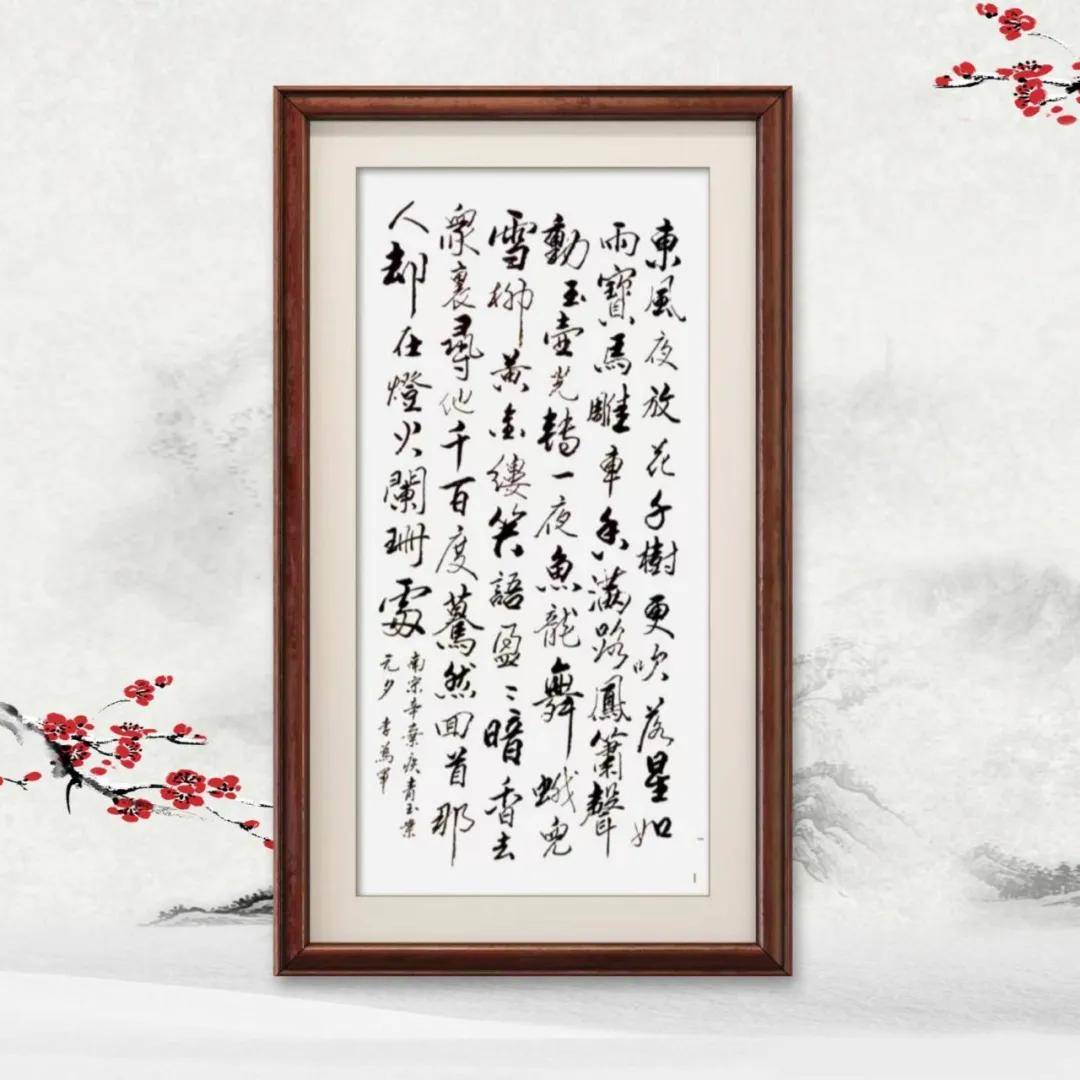 東風夜放花千樹更吹落星如
雨寶馬雕車香滿路鳳簫聲
動玉壺光轉一夜魚龍舞蛾兒
雪柳黃金縷笑語盈〻暗香去
眾裏尋他千百度驀然回首那
人却在燈火闌珊處
南宋辛棄疾青玉案
元夕